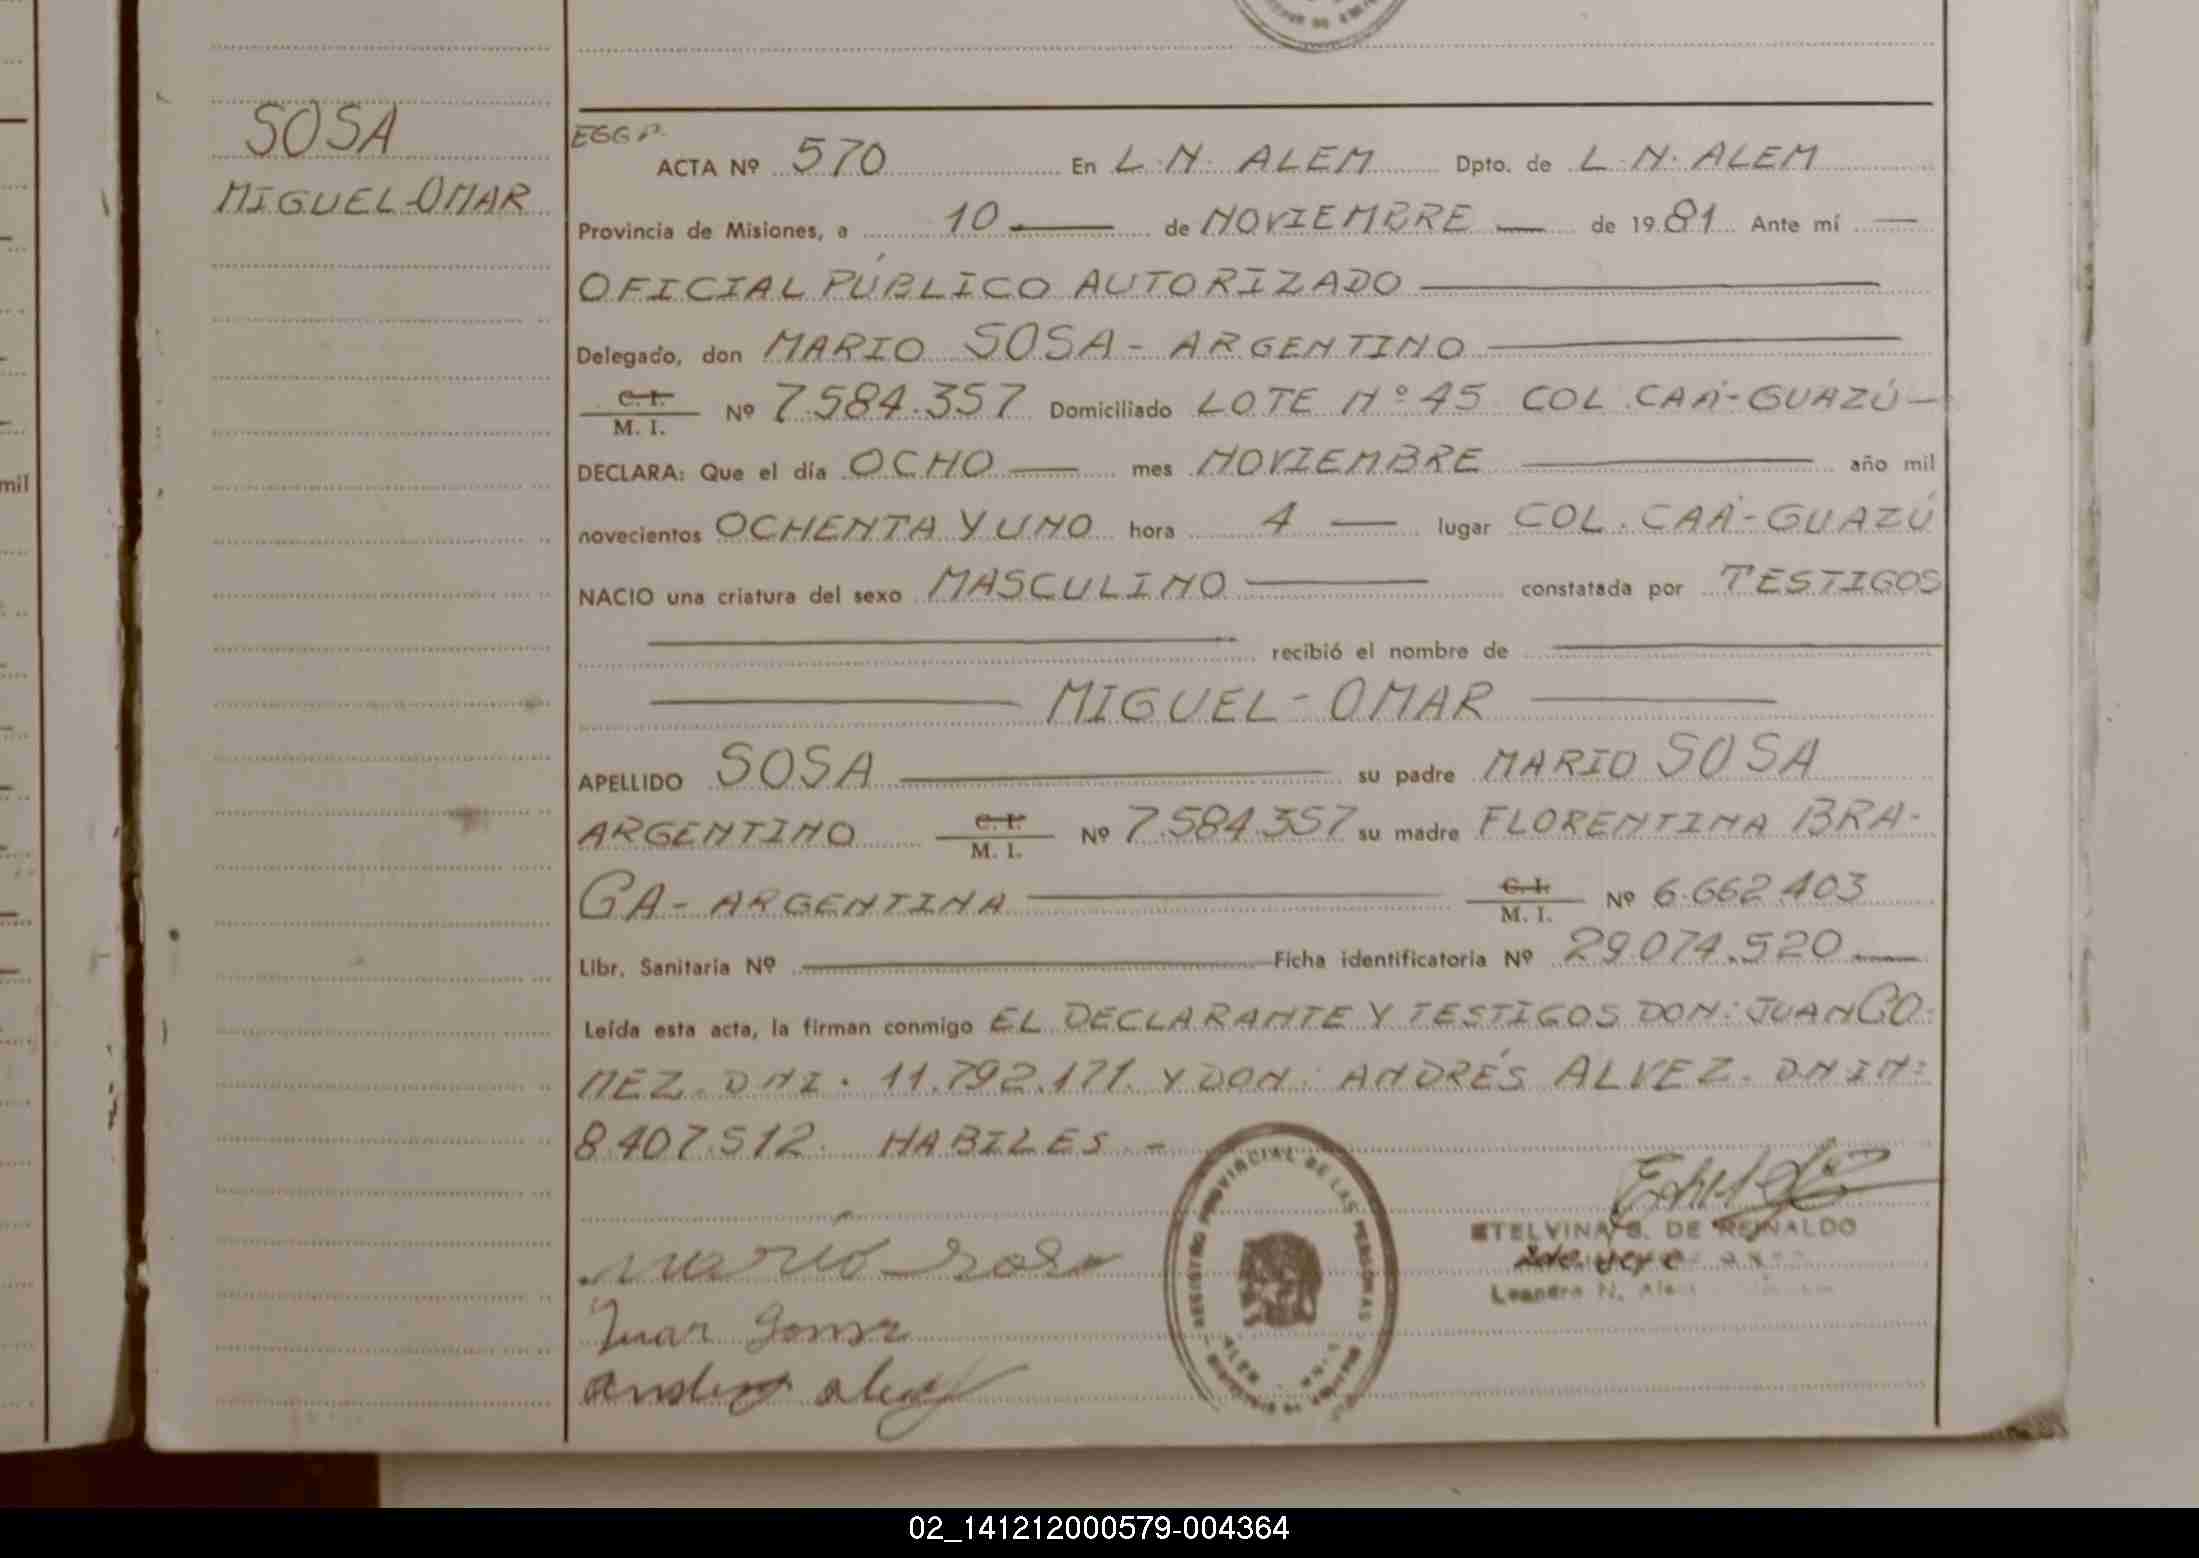 SOSA
MIGUEL-OMAR
ACTA Nº 570 En L. N. ALEM Dpto. de L. N. ALEM
Provincia de Misiones, a 10 — de NOVIEMBRE — de 1981 Ante mí —
OFICIAL PÚBLICO AUTORIZADO —
Delegado, don MARIO SOSA - ARGENTINO —
C. I. / M. I. Nº 7.584.357 Domiciliado LOTE Nº 45 COL. CAÁ-GUAZÚ—
DECLARA: Que el día OCHO — mes NOVIEMBRE — año mil
novecientos OCHENTA Y UNO hora 4 — lugar COL. CAÁ-GUAZÚ
NACIO una criatura del sexo MASCULINO — constatada por TESTIGOS
— recibió el nombre de —
— MIGUEL-OMAR —
APELLIDO SOSA — su padre MARIO SOSA
ARGENTINO C. I. / M. I. Nº 7.584.357 su madre FLORENTINA BRA-
GA - ARGENTINA — C. I. / M. I. Nº 6.662.403
Libr. Sanitaria Nº — Ficha identificatoria Nº 29.074.520 —
Leída esta acta, la firman conmigo EL DECLARANTE Y TESTIGOS DON: JUAN GO-
MEZ. DNI. 11.792.171. Y DON: ANDRÉS ALVEZ. DNI N:
8.407.512. HABILES. -
REGISTRO PROVINCIAL DE LAS PERSONAS
ALEM
mario sosa
Juan Gomez
ETELVINA B. DE REINALDO
Leandro N. Alem
mil
02_141212000579-004364